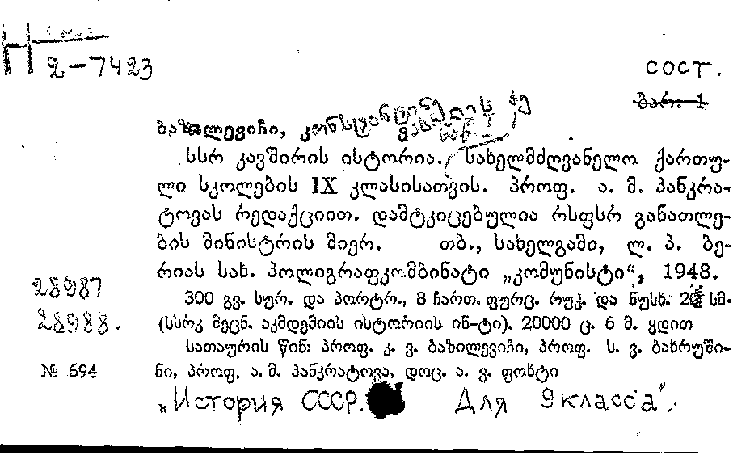 Н
2-7423
СОСТ.
გარ. 1
ბაზილევიჩი, კონსტანტინე
სსრ კავშირის ისტორია. სახელმძღვანელო ქართუ-
ლი სკოლების IX კლასისათვის. პროფ. ა. მ. პანკრა-
ტოვას რედაქციით. დამტკიცებულია რსფსრ განათლე-
ბის მინისტრის მიერ. თბ., სახელგამი, ლ. პ. ბე-
რიას სახ. პოლიგრაფკომბინატი „კომუნისტი“, 1948.
28987
300 გვ. სურ. და პორტრ., 8 ჩართ. ფურც. რუკ. და ნუსხ. სმ.
28988.
(სსრკ მეცნ. აკმდემიის ისტორიის ინ-ტი). 20000 ც. 6 მ. ყდით
სათაურის წინ: პროფ. კ. ვ. ბაზილევიჩი, პროფ. ს. ვ. ბახრუში-
№ 594 ნი, პროფ. ა. მ. პანკრატოვა, დოც. ა. ვ. ფოხტი
„История СССР. Для 9 класса".